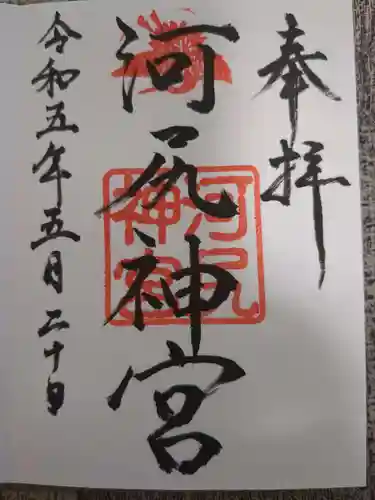 奉拝
河尻神宮
河尻
神宮
令和五年五月二十日